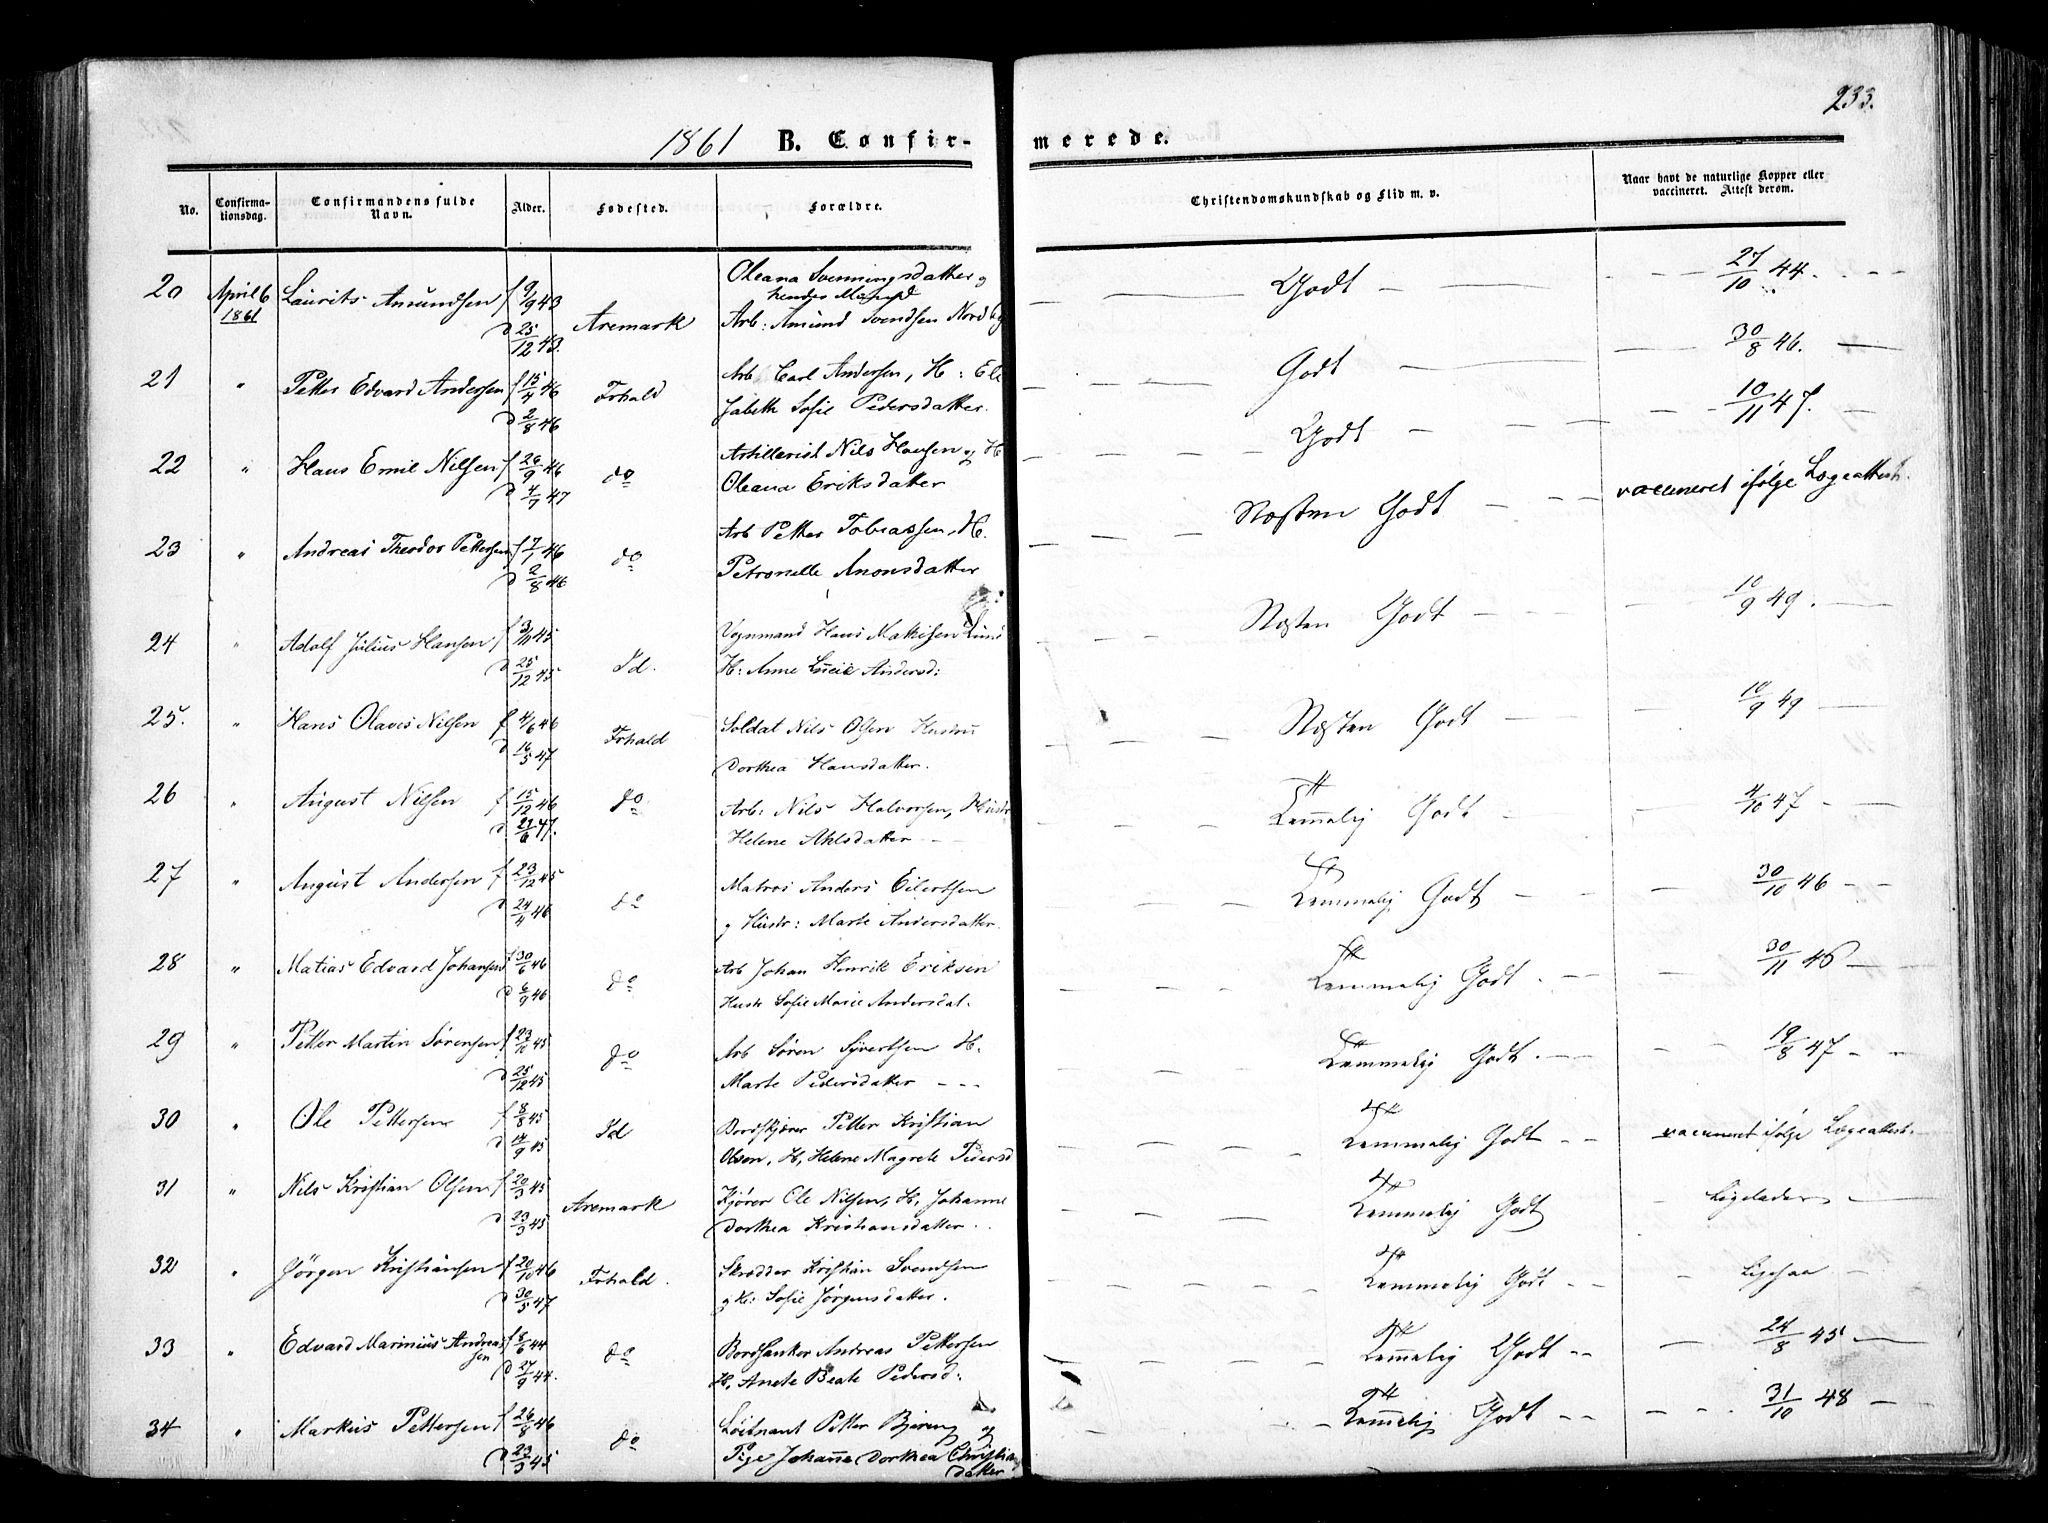 233.
1861 B. Confirmerede.
No. Confirmationsdag. Confirmandens fulde Navn. Alder. Fødested. Forældre. Christendomskundskab og Flid m. v. Naar havt de naturlige Kopper eller vaccineret. Attest derom.
20 April 6 1861 Laurits Amundsen f 9/9 43 d 25/12 43. Aremark Oleana Svenningsdatter og hendes Mand Arb: Amund Svendsen Nordby Godt 27/10 44.
21 " Petter Edvard Andersen f 15/4 46 d 2/8 46 Frhald Arb Carl Andersen, H: Elisabeth Sofie Pedersdatter. Godt 30/8 46.
22 " Hans Emil Nilsen f 26/9 46 d 4/7 47 do Artillerist Nils Hansen og H Oleana Eriksdatter Godt 10/11 47.
23 " Andreas Theodor Pettersen f 7/1 46 d 2/8 46 do Arb Petter Tobiassen, H. Petronelle Anonsdatter Næsten Godt vaccineret ifølge Lægeattest.
24 " Adolf Julius Hansen f 3/11 45 d 25/12 45 Id. Vognmand Hans Mathisen Lund H: Anne Lucie Andersd: Næsten Godt 10/9 49.
25. " Hans Olaves Nilsen f 4/6 46 d 16/5 47 Frhald Soldat Nils Olsen Hustru Dorthea Hansdatter. Næsten Godt 10/9 49
26 " August Nilsen f 15/12 46 d 27/6 47. do Arb: Nils Halvorsen, Hustr Helene Ahlsdatter Temmelig Godt 4/10 47
27 " August Andersen f 23/12 45 d 24/4 46 do Matros Anders Eilertsen og Hustr: Marte Andersdatter. Temmelig Godt 30/10 46
28 " Matias Edvard Johansen f 30/6 46 d 6/9 46 do Arb Johan Henrik Eriksen Hustr Sofie Marie Andersdat. Temmelig Godt 30/11 46
29 " Petter Martin Sørensen f 23/10 45 d 25/12 45 do Arb Søren Syvertsen H. Marte Pedersdatter Temmelig Godt 19/8 47
30 " Ole Pettersen f 8/8 45 d 14/9 45 Id Bordskjører Petter Kristian Olsen, H, Helene Magrete Pedersd Temmelig Godt vaccineret ifølge Lægeattest.
31 " Nils Kristian Olsen f 20/3 45 d 23/3 45 Aremark Kjører Ole Nilsen, H, Johanne Dorthea Kristiansdatter. Temmelig Godt Ligeledes
32 " Jörgen Kristiansen f 20/10 46 d 30/5 47 Frhald. Skrædder Kristian Svendsen og H: Sofie Jörgensdatter. Temmelig Godt Ligesaa
33 " Edvard Marinius Andreassen f 8/6 44 d 27/9 44. do Bordsanker Andreas Pettersen H, Anete Beate Pedersd: Temmelig Godt 24/8 45
34 " Markus Pettersen f 26/8 46 d 23/3 45 do Löitnant Petter Bjering og Pige Johanne Dorthea Christiansdatter Temmelig Godt 31/10 48